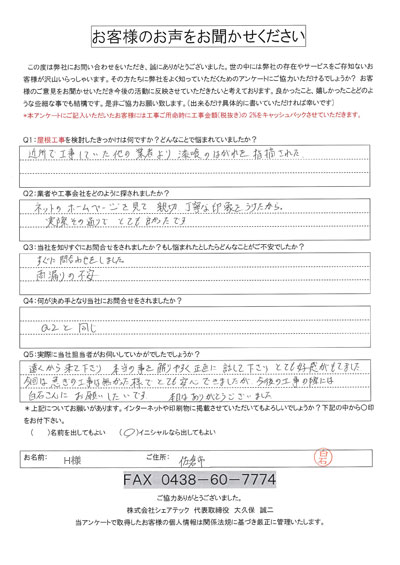 お客様のお声をお聞かせください
この度は弊社にお問い合わせをいただき、誠にありがとうございました。世の中には弊社の存在やサービスをご存知ないお
客様が沢山いらっしゃいます。その方たちに弊社をよく知っていただくためのアンケートにご協力いただけるでしょうか？ お客
様のご意見をお聞かせいただき今後の活動に反映させていただきたいと考えております。良かったこと、嬉しかったことどのよ
うな些細な事でも結構です。是非ご協力お願い致します。（出来るだけ具体的に書いていただければ幸いです）
*本アンケートにご記入いただいたお客様には工事ご用命時に工事金額(税抜き)の 2%をキャッシュバックさせていただきます。
Q1:屋根工事を検討したきっかけは何ですか？どんなことで悩まれていましたか？
近所で工事していた他の業者より 漆喰のはがれを指摘された
Q2:業者や工事会社をどのように探されましたか？
ネットのホームページを見て 親切、丁寧な印象をうけたから。
実際その通りで とても良かったです
Q3:当社を知りすぐにお問合せをされましたか？もし悩まれたとしたらどんなことがご不安でしたか？
すぐに問合わせをしました。
雨漏りの不安
Q4:何が決め手となり当社にお問合せをされましたか？
Q2と同じ
Q5:実際に当社担当者がお伺いしていかがでしたでしょうか？
遠くから来て下さり 本当の事を解りやすく正直に話して下さり とても好感がもてました
今回は急ぎの工事は無かった様で とても安心できましたが 今後の工事の際には
白石さんに お願いしたいです 本日はありがとうございました
＊上記についてお願いがあります。インターネットや印刷物に掲載させていただいてもよろしいでしょうか？下記の中から〇印
をお付下さい。
（ ）名前を出してもよい （〇）イニシャルなら出してもよい
お名前: H様 ご住所: 佐倉市 白石
FAX 0438-60-7774
ご協力ありがとうございました。
株式会社シェアテック 代表取締役 大久保 誠二
当アンケートで取得したお客様の個人情報は関係法規に基づき厳正に管理いたします。